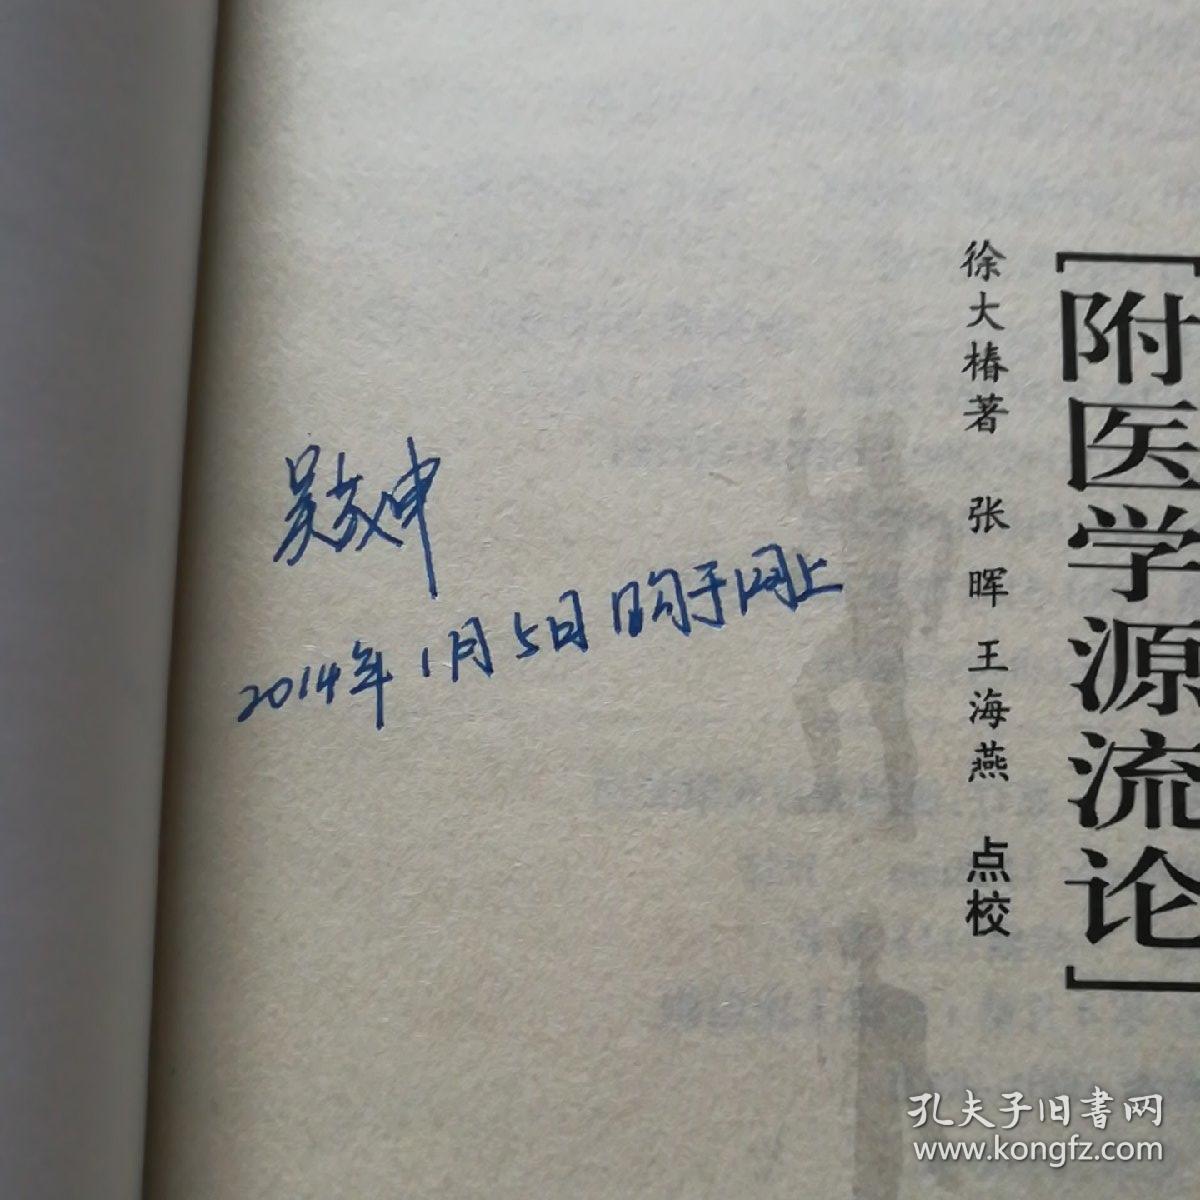 [附医学源流论]
徐大椿著 张晖 王海燕 点校
吴敬申
2014年1月5日购于网上
孔夫子旧书网
www.kongfz.com